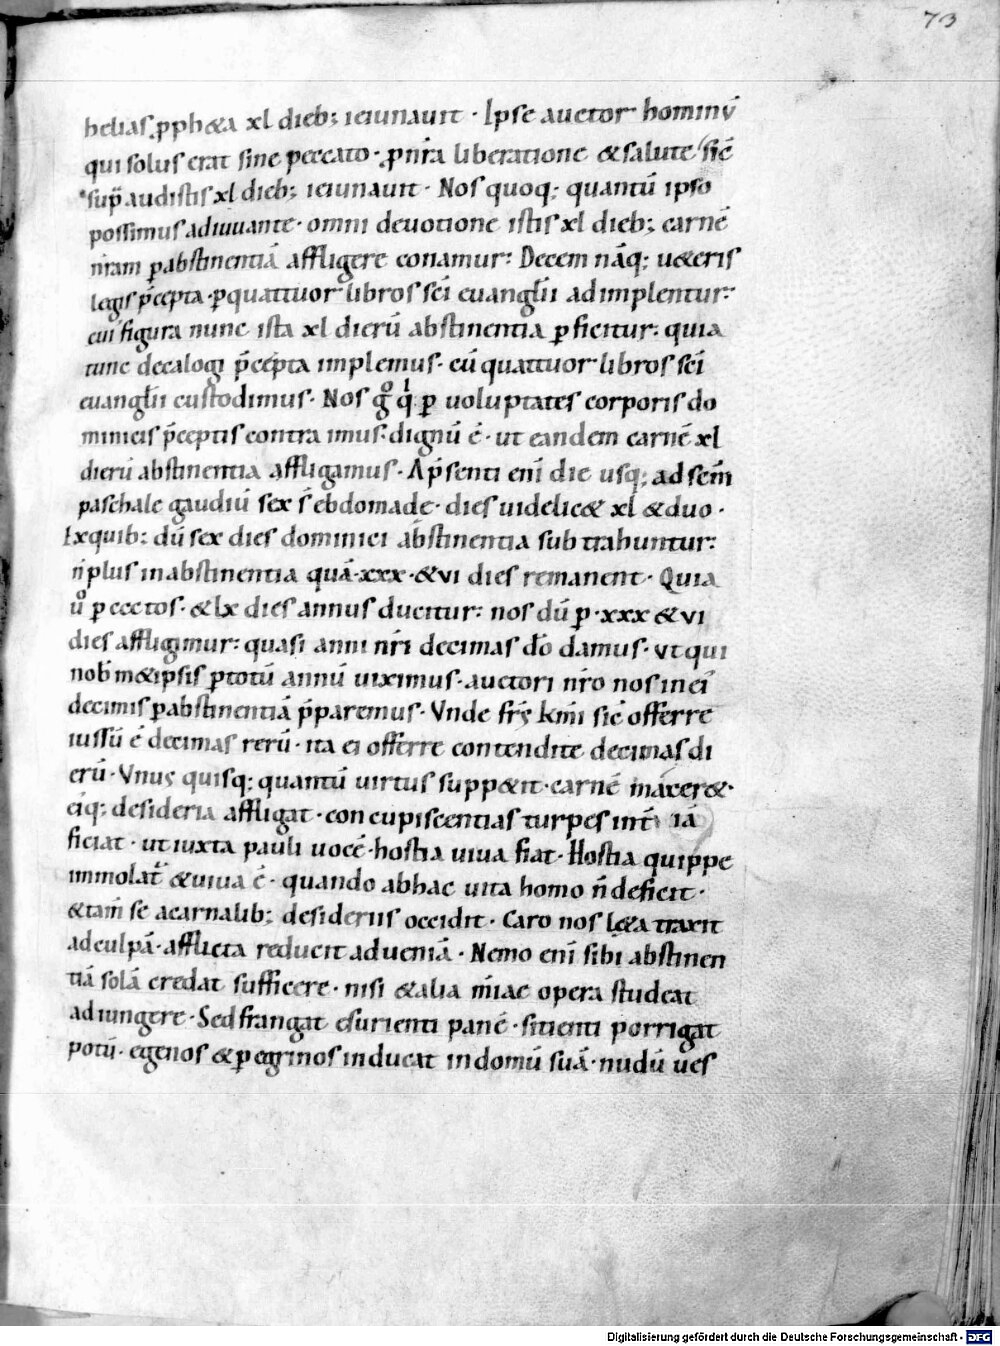 73
helias ꝓph&a xl dieb; ieiunauit · Ipse auctor hominū
qui solus erat sine peccato · ꝓ nr̄a liberatione & salute sic̄
sup̄ audistis xl dieb; ieiunauit · Nos quoq; quantū ipso
possimus adiuuante · omni deuotione istis xl dieb; carnē
nr̄am ꝑ abstinentiā affligere conamur: Decem nāq; u&eris
legis p̄cepta · ꝑ quattuor libros sc̄i euangl̄ii adimplentur:
cui figura nunc ista xl dierū abstinentia ꝑficitur: quia
tunc decalogi p̄cepta implemus · cū quattuor libros sc̄i
euangl̄ii custodimus · Nos gͦ qⁱ ꝑ uoluptates corporis do
minicis p̄ceptis contra imus · dignū ē · ut eandem carnē xl
dierū abstinentia affligamus · A p̄senti eni̅ die usq; ad sem̄
paschale gaudiū sex s̄ ebdomade · dies uidelic& xl & duo ·
Ex quib; dū sex dies dominici abstinentia subtrahuntur:
n̄ plus in abstinentia quā · xxx · & vi dies remanent · Quia
ů ꝑ ccctos · & lx dies annus ducitur: nos dū ꝑ · xxx & vi
dies affligimur: quasi anni nr̄i decimas dō damus · vt qui
nob̄ m&ipsis ꝑ totū annū uiximus · auctori nr̄o nos in ei'
decimis ꝑ abstinentiā p̄paremus · Vnde fr̄s km̄i sic̄ offerre
iussū ē decimas rerū · ita ei offerre contendite decimas di
erū · Vnus quisq; quantū uirtus supp&it · carnē macer& ·
eiq; desideria affligat · concupiscentias turpes int̄
ficiat · ut iuxta pauli uocē · hostia uiua fiat · Hostia quippe
immolat̄ & uiua ē · quando ab hac uita homo n̄ deficit ·
& tam̄ se a carnalib; desideriis occidit · Caro nos l&a traxit
ad culpā · afflicta reducit ad ueniā · Nemo eni̅ sibi abstinen
tiā solā credat sufficere · nisi & alia mi̅ae opera studeat
adiungere · Sed frangat esurienti panē · sitienti porrigat
potū · egenos & ꝑegrinos inducat in domū suā · nudū ues
Digitalisierung gefördert durch die Deutsche Forschungsgemeinschaft - DFG